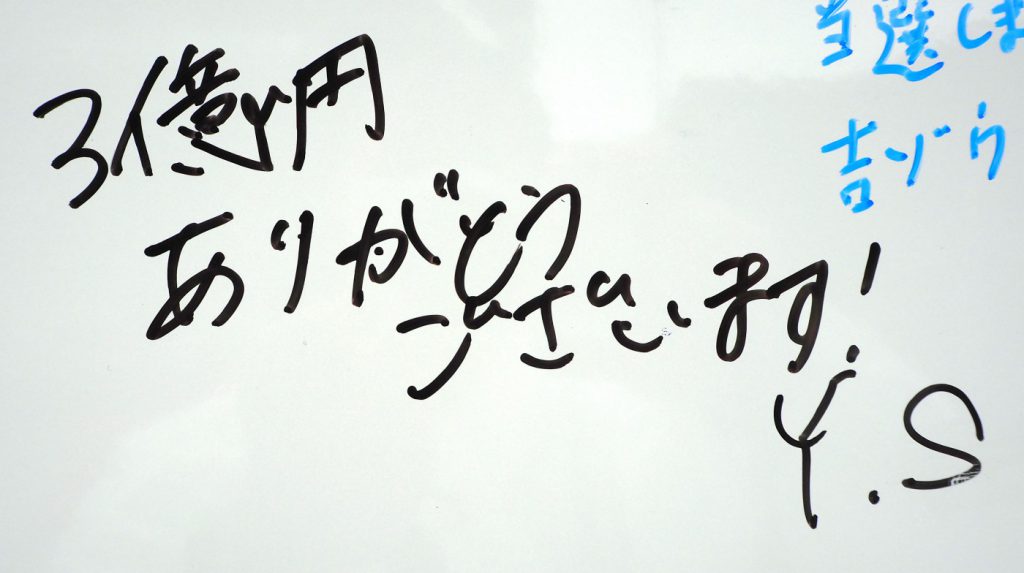 3億円
ありがとう
ございます!
Y.S
当選しま
吉ゾウ